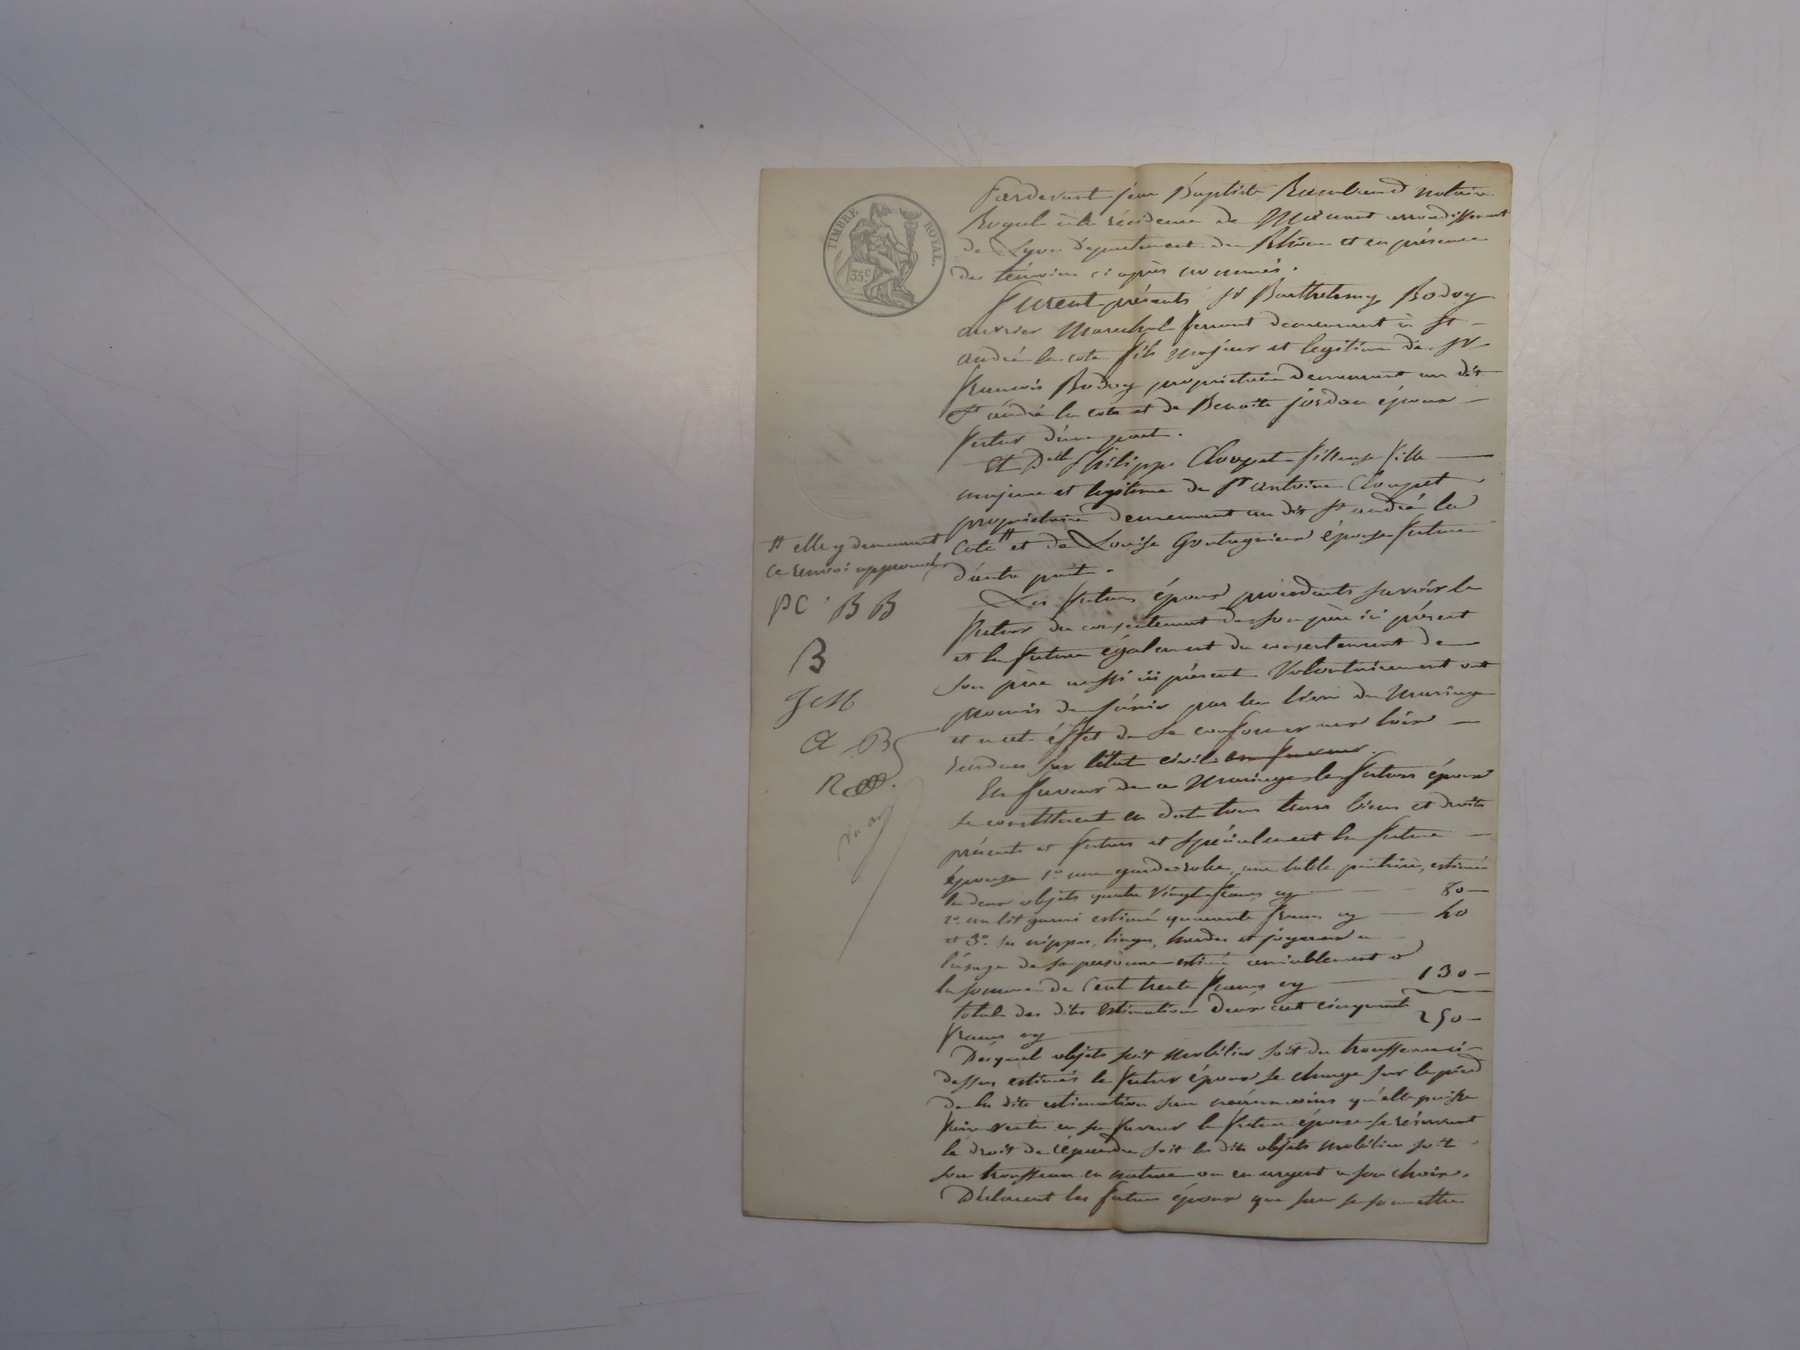 TIMBRE ROYAL.
35 c
Pardevant Jean Baptiste notaire
Royal à la résidence de Mornant arrondissement
de Lyon département du Rhône et en présence
des témoins ci après nommés.
Furent présents Sr Barthelemy Bodoy
ouvrier Marechal ferrant demeurant à St
andré la cote fils majeur et legitime de Sr
francois Bodoy propriétaire demeurant au dit
St andré la cote et de Benoite jordan époux
futur d'une part.
Et Dlle Philippe Clouzet fille
majeure et legitime de Sr antoine Clouzet
propriétaire demeurant au dit St andré la
cote # et de Louise épouse future
d'autre part.
# elle y demeurant
ce renvoi approuvé
PC B B
B
A B
Les futurs époux procédants savoir le
futur du consentement de son père ici présent
et la future également du consentement de
son père aussi ici présent Volontairement ont
promis de s'unir par les liens du Mariage
et a cet éffet de se conformer aux loix
rendues sur l'état civil en faveur.
En faveur de ce Mariage les futurs époux
se constituent en dot tous leurs biens et droits
présents et futurs et spécialement la future
épouse 1o une garderobe, une table pétrière, estimés
les deux objets quatre vingt francs cy 80
2o un lit garni estimé quarante francs cy 40
et 3o ses nippes, linges, hardes et joyeaux a
l'usage de sa personne estimé amiablement a
la somme de Cent trente francs cy 130
total des dites estimations deux cent cinquante
francs cy 250
Desquels objets soit mobilier soit du trousseau ci
dessus estimés le futur époux se charge sur le pied
de la dite estimation sans néanmoins qu'elle puisse
faire vente en sa faveur la future épouse se réservant
le droit de reprendre soit les dits objets mobiliers soit
son trousseau en nature ou en argent a son choix.
Déclarent les futurs époux que sans se soumettre